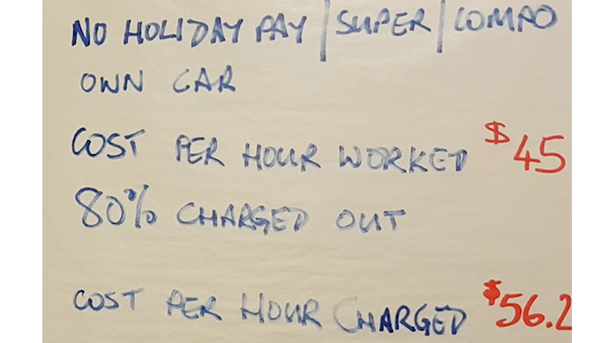 NO HOLIDAY PAY | SUPER | COMPO
OWN CAR
COST PER HOUR WORKED $45
80% CHARGED OUT
COST PER HOUR CHARGED $56.2